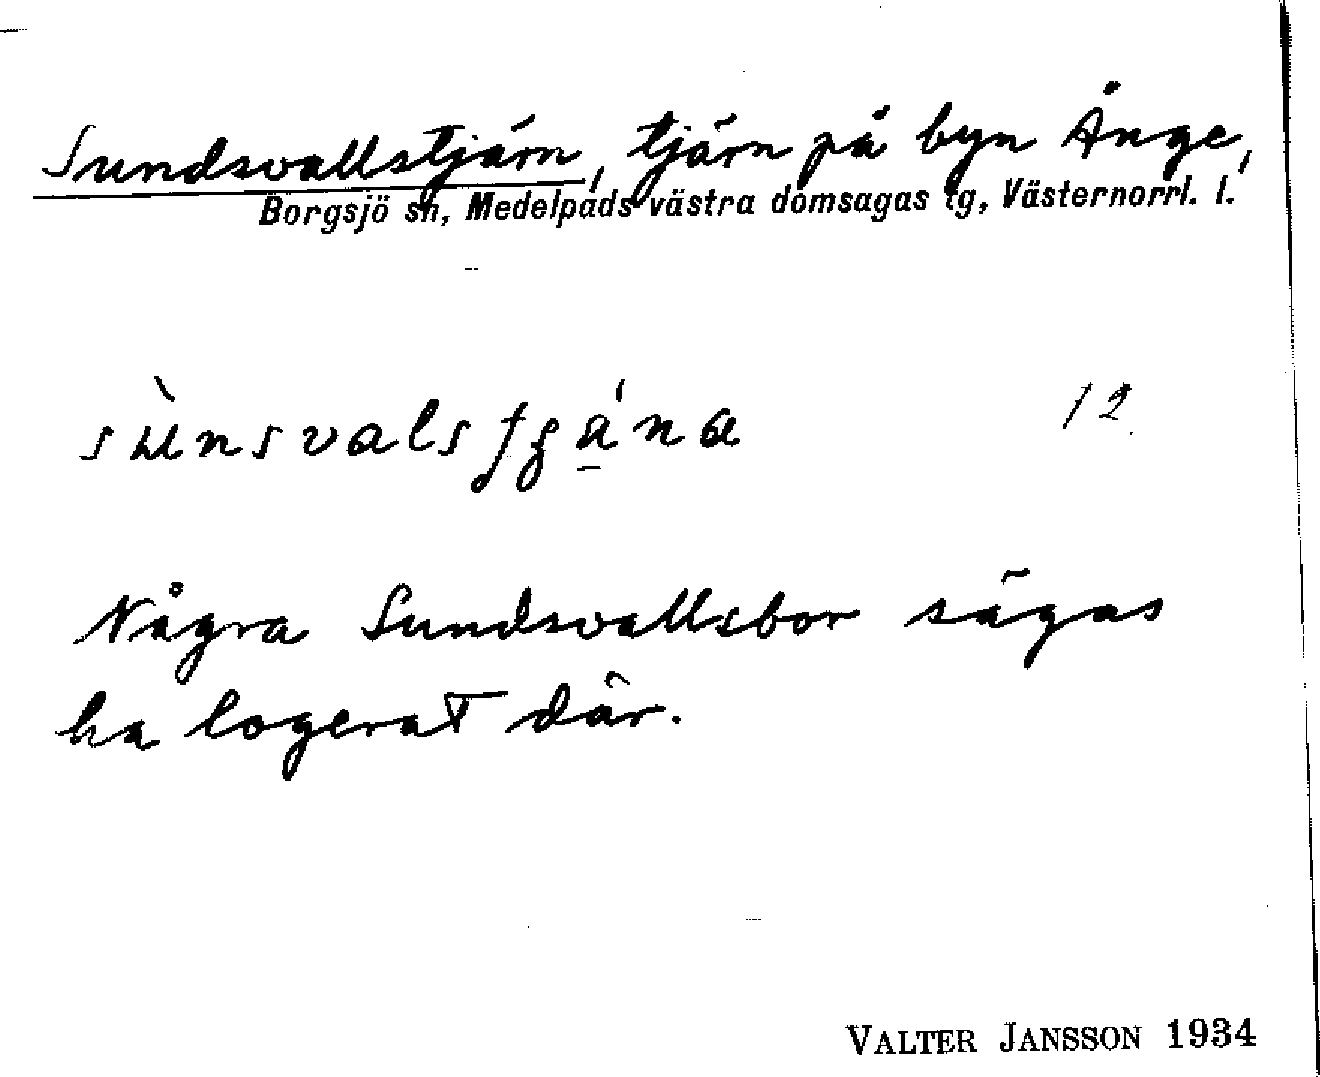 Sundsvallstjärn, tjärn på byn Ånge,
Borgsjö sn, Medelpads västra domsagas tg, Västernorrl. l.
12
Några Sundsvallsbor sägas
ha logerat där.
VALTER JANSSON 1934